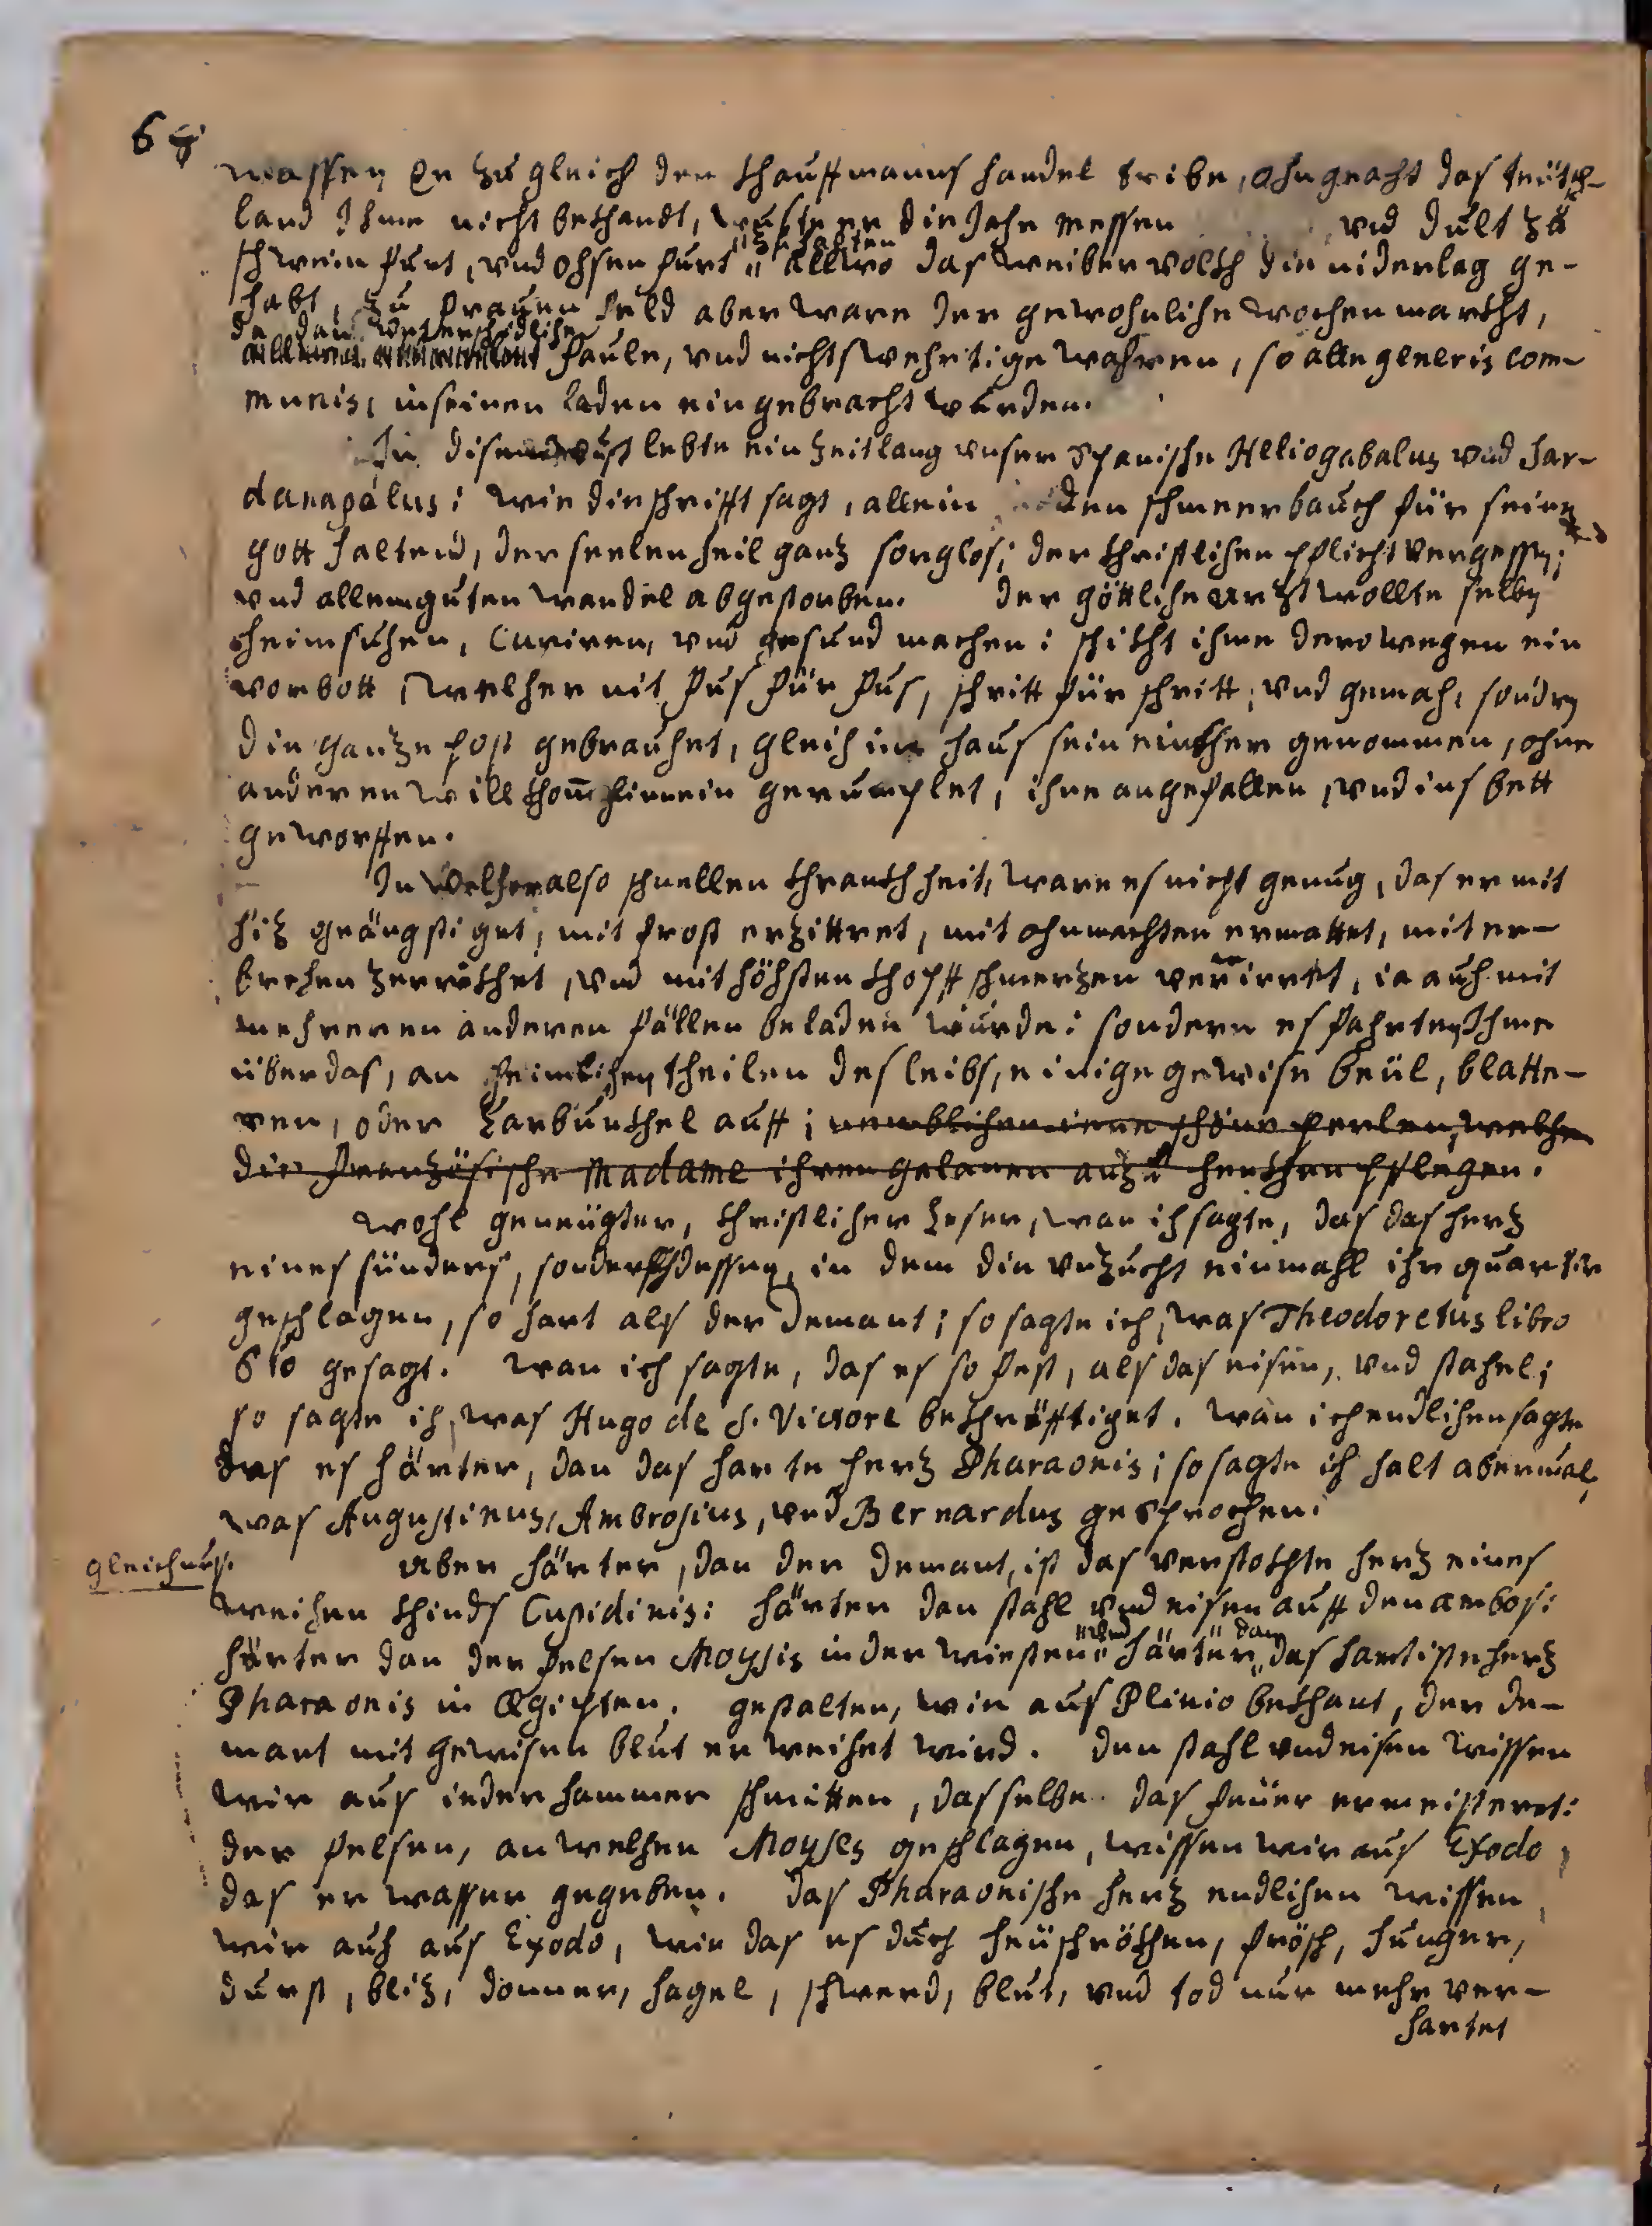 68
massen Er zu gleich den Khauffmanns handel tribe, ohngeacht das teütsch-
land Ihme nicht bekhandt, wuste er die Jahr messen vnd dult zu
schweinfurt, vnd ohsenfurt zehalten allwo das weibervolckh die niderlag ge-
habt, zu frauenfeld aber ware der gewohnliche wochen marckht,
da dan vnterschidliche faule, vnd nichtswehrtige wahren, so alle generis com-
munis, in seinen laden eingebracht wurden.
In disem wust lebte ein zeitlang vnser Spanische Heliogabalus vnd Sar-
danapalus: wie die schrifft sagt, allein den schmeerbauch für seinen
gott haltend, der seelen heil ganz sorglos; der christlichen pflicht vergessen;
vnd allem guten wandel abgestorben. der göttliche arzt wollte selben
heimsuchen, Curiren, vnd gesund machen: schickht ihme derowegen ein
vorbott, welcher nit fus für fus, schritt für schritt, vnd gemach, sondern
die ganze post gebrauchet, gleich ins haus sein einkher genommen, ohne
anderen willkhom hinein gerumplet, ihne angefallen, vnd ins bett
geworffen.
In welcher also schnellen khranckheit, ware es nicht genug, das er mit
hiz geängstiget, mit frost erzittret, mit ohnmachten ermattet, mit er-
brechen zerrikhet, vnd mit höchsten khopff schmerzen verwirret, ia auch mit
mehreren anderen fällen beladen wurde: sondern es fahrten Ihme
über das, an heimlichen theilen des leibs, einige gewise beül, blatte-
ren, oder Carbunckhel auff; nemblichen iene schöne perlen, welche
die französische Madame ihren galanen anzuhenckhen pflegen.
Wohl geneügter, christlicher Leser, wan ich sagte, das das herz
eines sünders, sonderlich dessen, in dem die vnzucht einmahl ihr quartir
geschlagen, so hart als der Demant; so sagte ich, was Theodoretus libro
6to gesagt. Wan ich sagte, das es so fest, als das eisen, vnd stahel;
so sagte ich, was Hugo de S. Victore bekhräfftiget. wan ich endlichen sagte
das es härter, dan das harte herz Pharaonis; so sagte ich halt abermal,
was Augustinus, Ambrosius, vnd Bernardus gesprochen.
Gleichnus.
Aber härter, dan der Demant, ist das verstockhte herz eines
weichen khinds Cupidinis: härter dan stahl vnd eisen auff den ambos:
härter dan der felsen Moysis in der wiesten: vnd härter dan das hartiste herz
Pharaonis in Ægipten. gestalten, wie aus Plinio bekhant, der De-
mant mit gewisen blut erweichet wird. den stahl vnd eisen wissen
wir aus ieder hammer schmitten, das selbe das feüer ermeisteret:
der felsen, an welchen Moyses geschlagen, wissen wir aus Exodo,
das er wasser gegeben. Das Pharaonische herz endlichen wissen
wir auch aus Exodo, wie das es durch heüschröckhen, frösch, hunger,
durst, bliz, donner, hagel, schwerd, blut, vnd tod nur mehr ver-
hartet